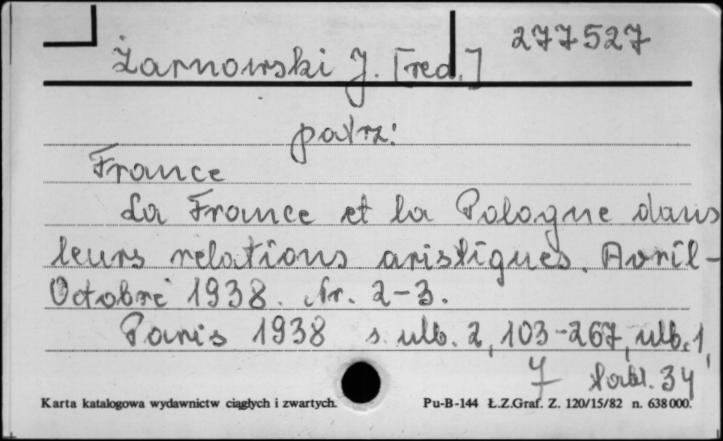 277527
Żarnowski J. [red.]
patrz:
France
La France et la Pologne dans
leurs relations aristiques. Avril-
Octobre 1938. Nr. 2-3.
Paris 1938 s. ulb. 2, 103-267, ulb. 1,
tabl. 34
Karta katalogowa wydawnictw ciągłych i zwartych. Pu-B-144 Ł.Z.Graf. Z. 120/15/82 n. 638000.